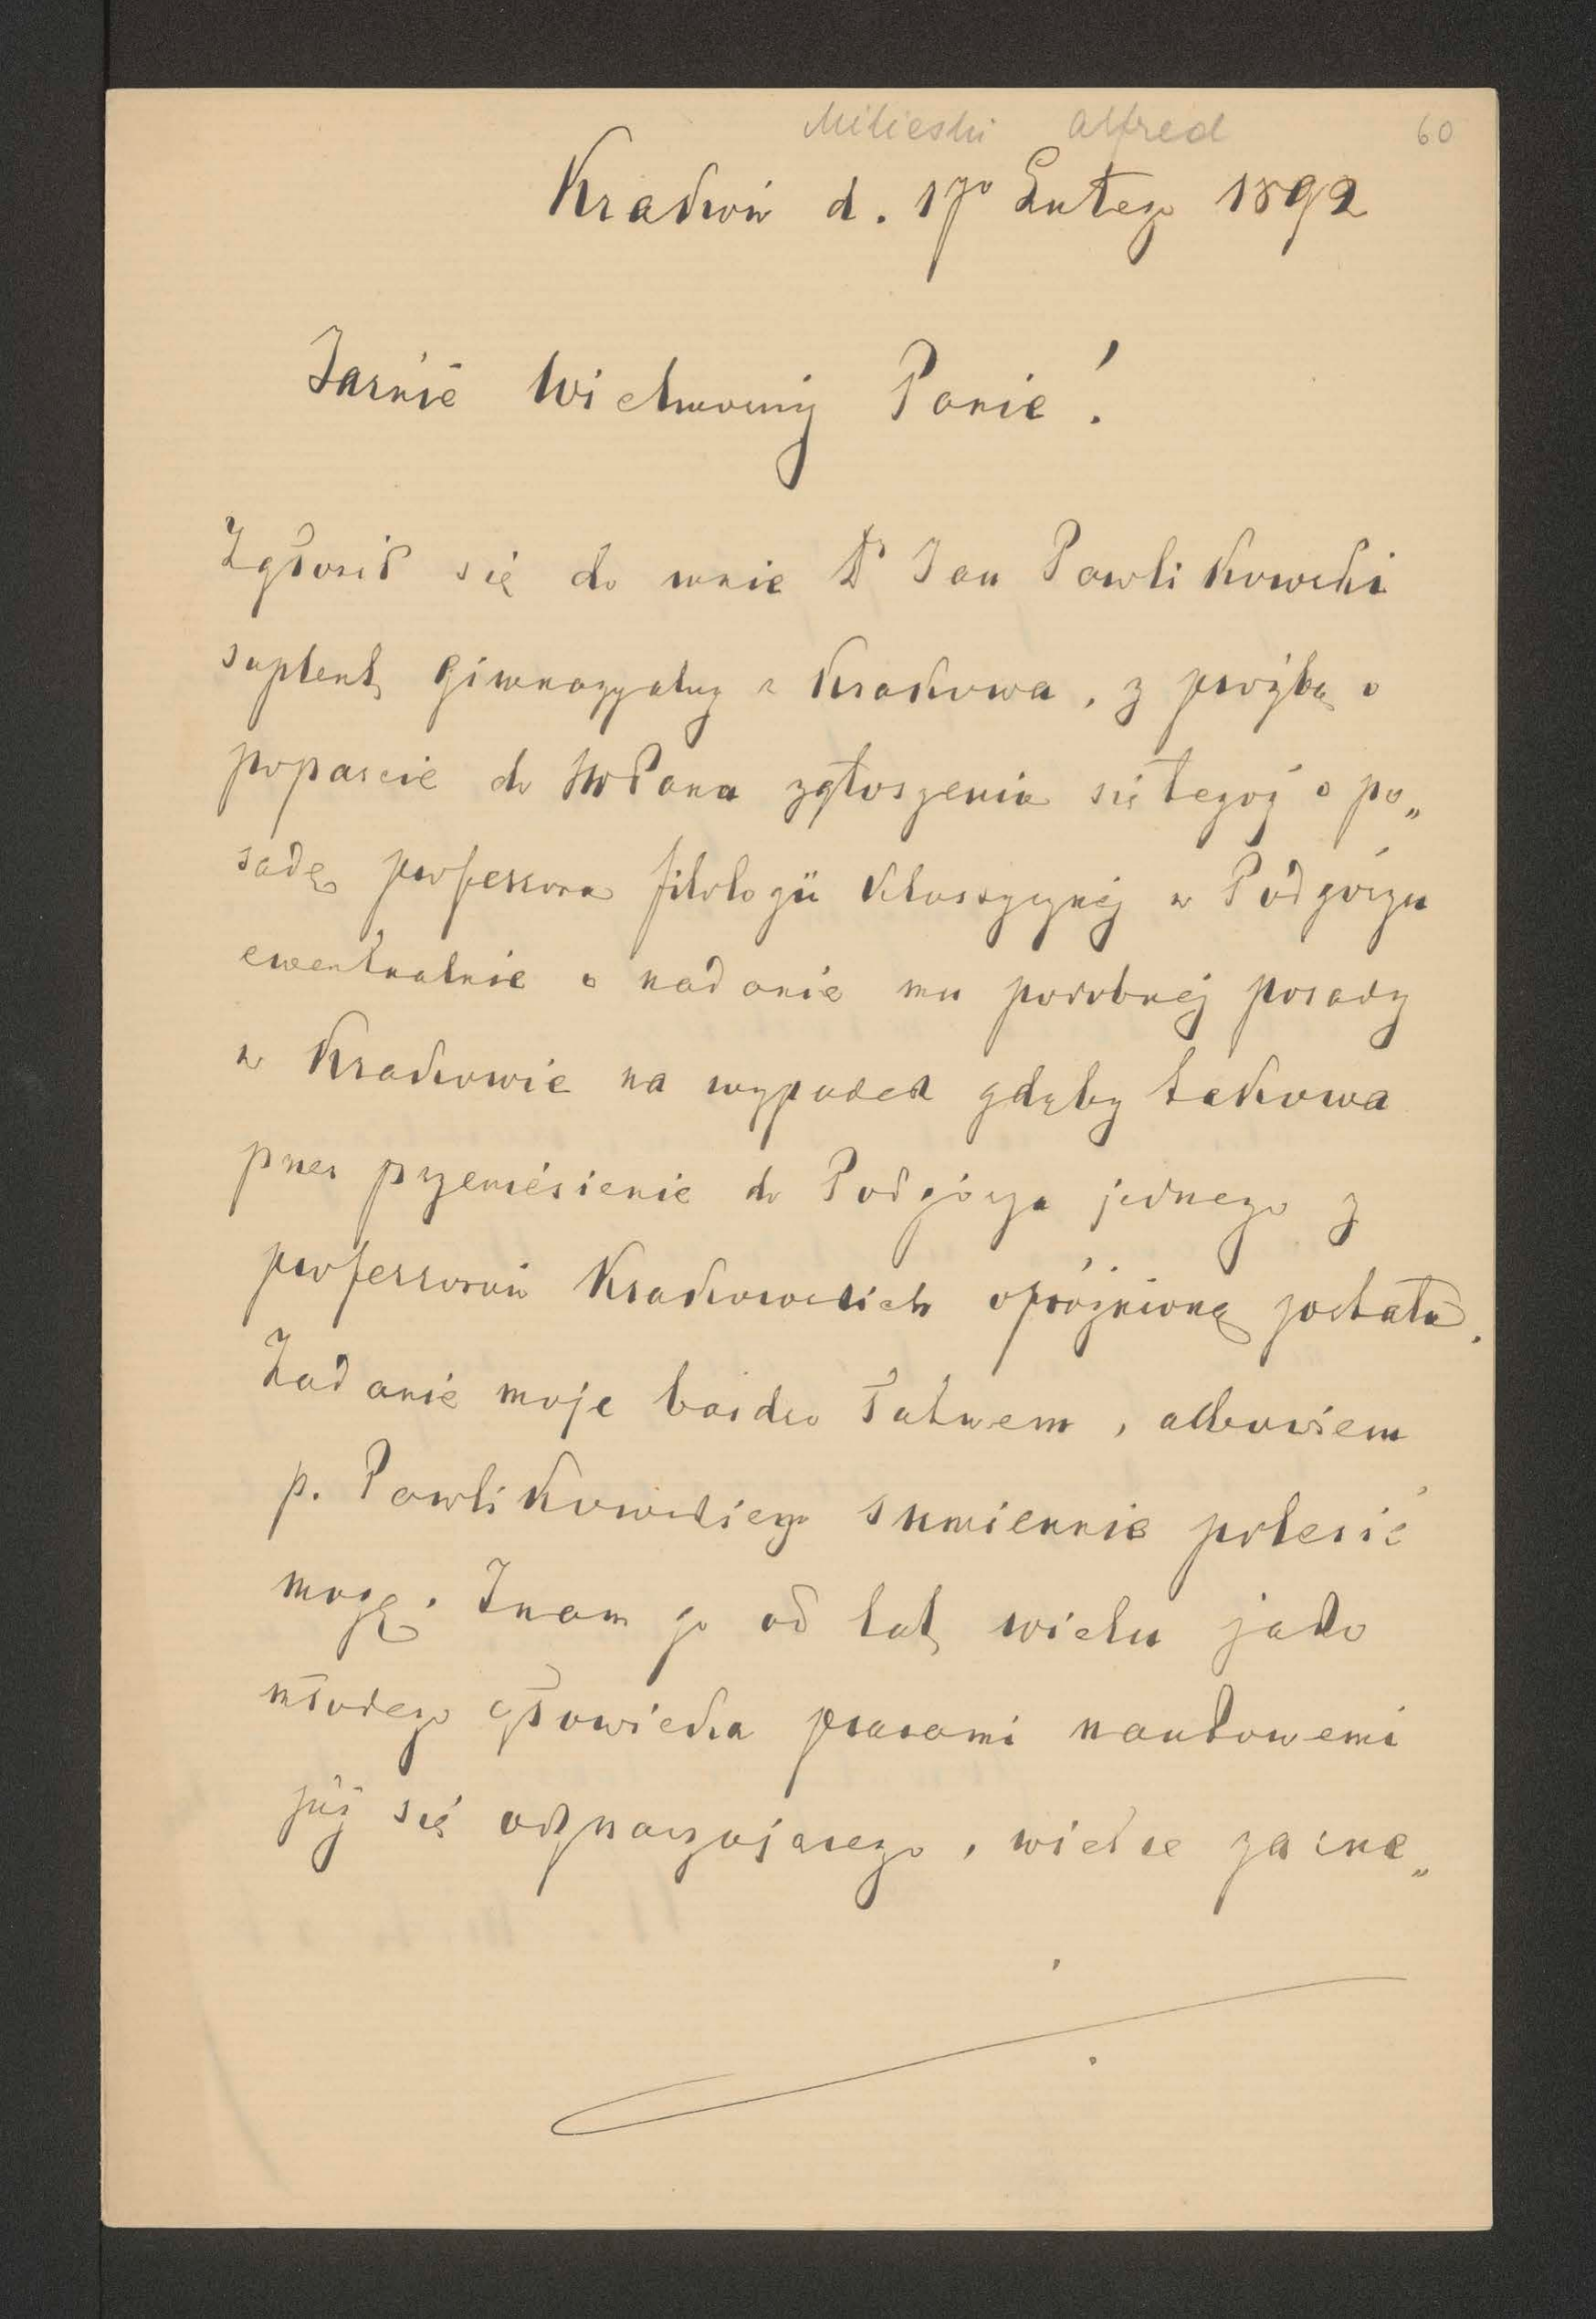 Milieski Alfred 60
Kraków d. 17go Lutego 1892
Jaśnie Wielmożny Panie!
Zgłosił się do mnie Dr Jan Pawlikowski
suplent gimnazyalny z Krakowa, z prośbą o
poparcie do JWPana zgłoszenia się tegoż o po„
sadę professora filologii klassycznéj w Podgórzu
ewentualnie o nadanie mu podobnéj posady
w Krakowie na wypadek gdyby takowa
przez przeniesienie do Podgórza jednego z
professorów Krakowskich opróżnioną została.
Zadanie moje bardzo łatwem, albowiem
p. Pawlikowskiego sumiennie polecić
mogę. Znam go od lat wielu jako
młodego człowieka pracami naukowemi
już się odznaczającego, wielce zacne„